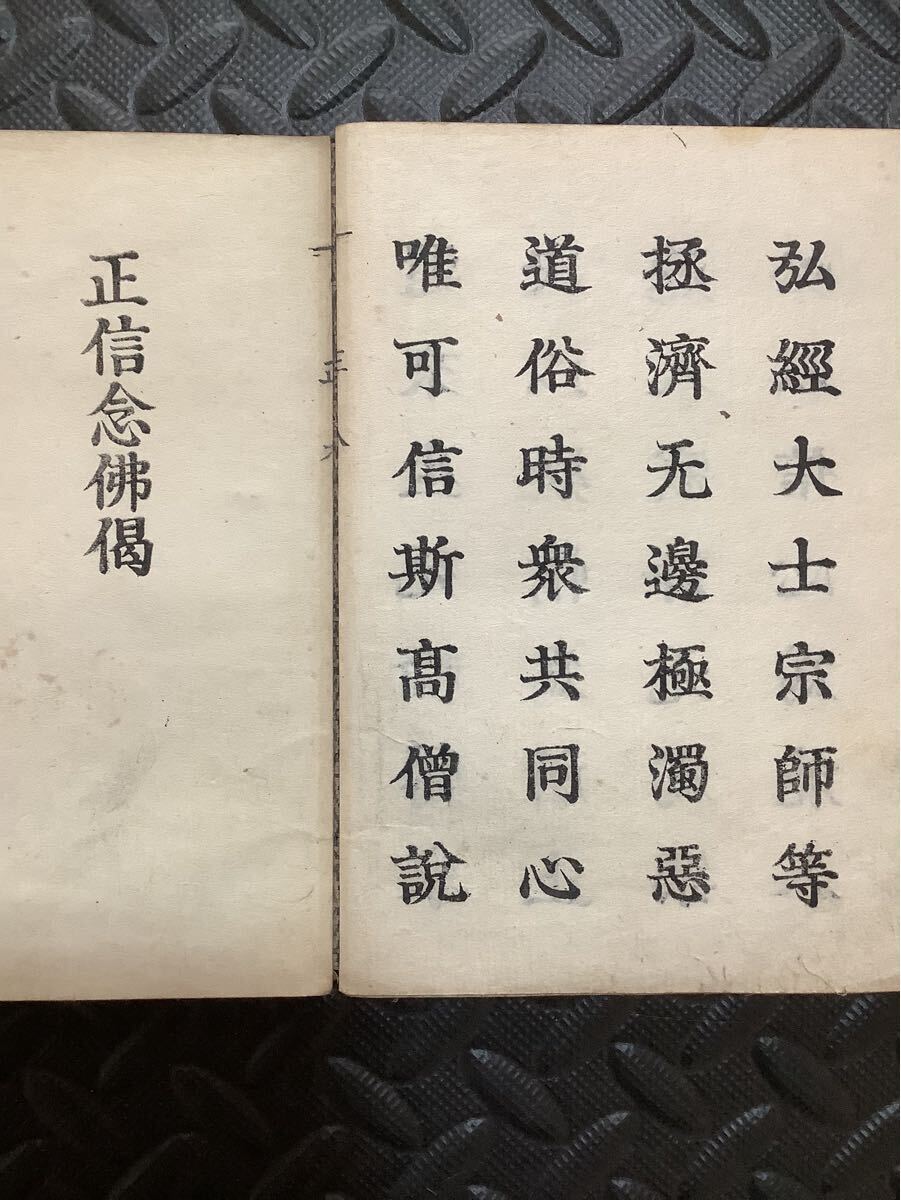 弘經大士宗師等
拯濟无邊極濁惡
道俗時衆共同心
唯可信斯髙僧說
正信念佛偈